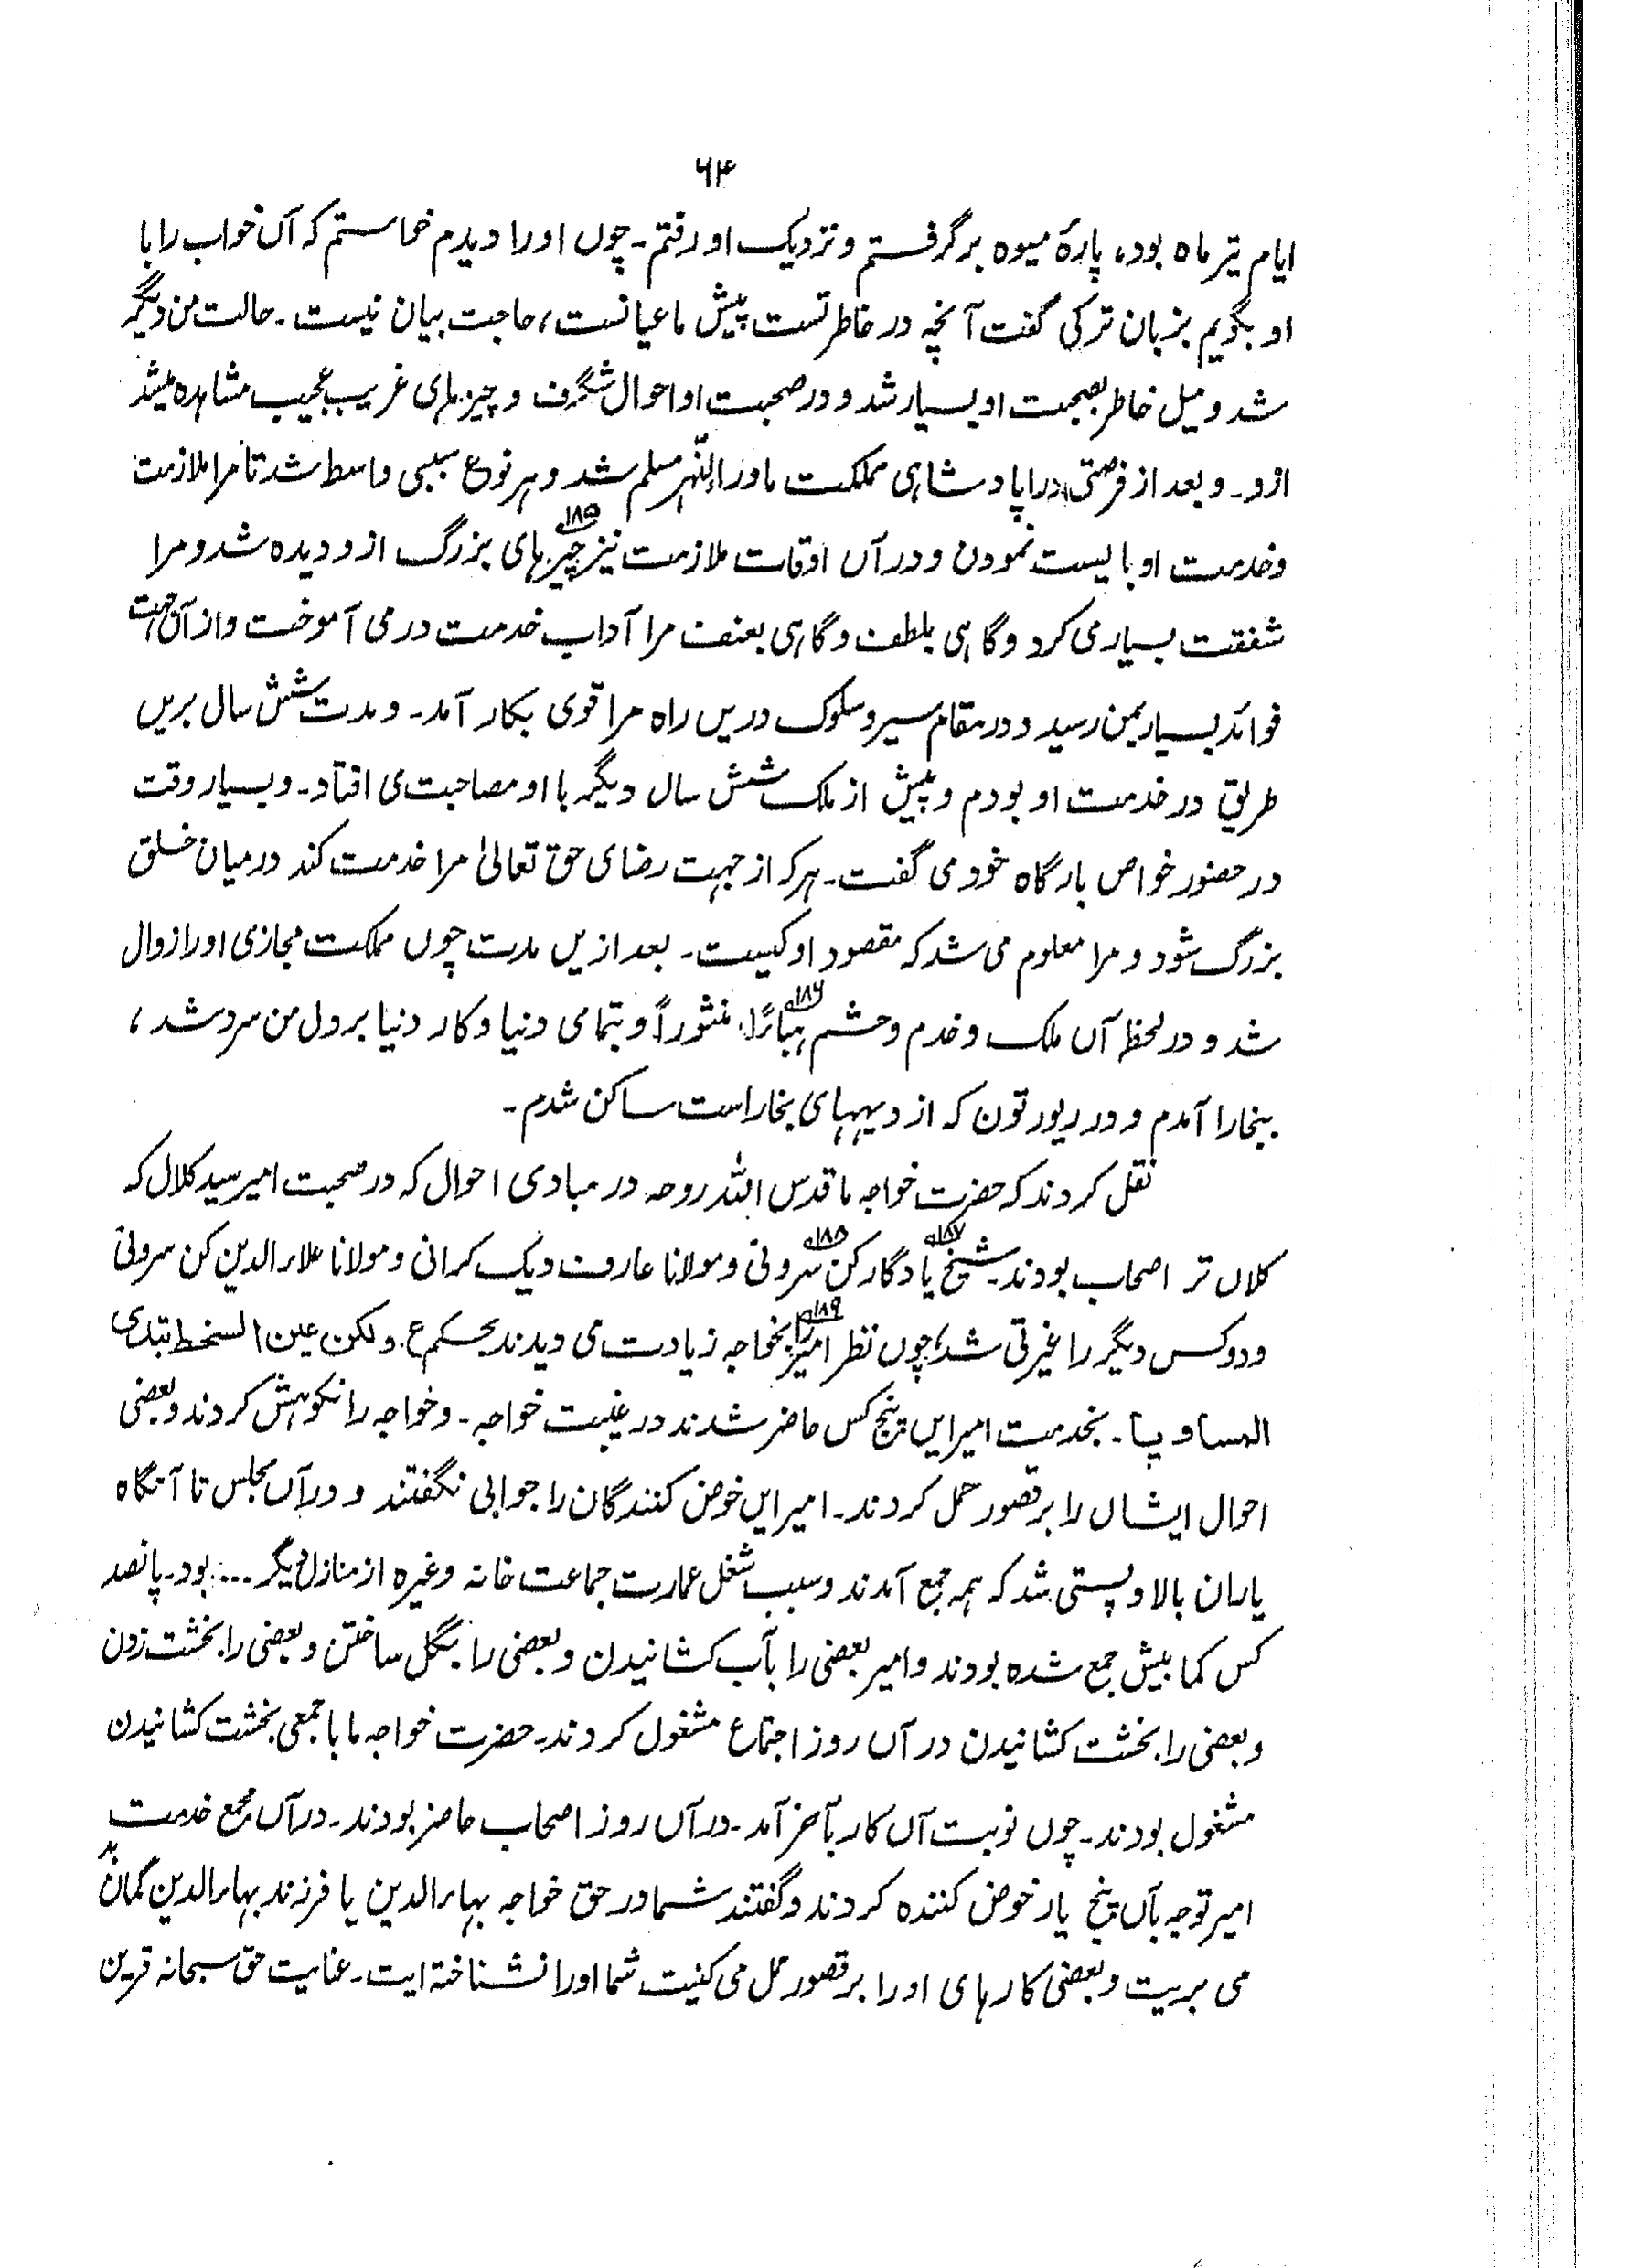 ۶۴
ایام تیر ماه بود، پارهٔ میوه برگرفتم و نزدیک او رفتم۔ چوں او را دیدم خواستم که آں خواب را با
او بگویم بزبان ترکی گفت آنچه در خاطر تست پیش ما عیانست، حاجت بیان نیست۔ حالت من دیگر
شد و میل خاطر بصحبت او بسیار شد و در صحبت او احوال شگرف و چیزہای غریب عجیب مشاہدہ میشد
ازو۔ و بعد از فرصتی اورا پادشاہی مملکت ماوراء النّہر مسلم شد و بہر نوع سببی واسط شد تا مرا ملازمت
و خدمت او بایست نمودن و در آں اوقات ملازمت نیز چیزہای ۱۸۵ بزرگ ازو دیدہ شد و مرا
شفقت بسیار می کرد و گاہی بلطف و گاہی بعنف مرا آداب خدمت در می آموخت و از آں جہت
فوائد بسیار بمن رسید و در مقام سیر و سلوک دریں راہ مرا قوی بکار آمد۔ و مدت شش سال بریں
طریق در خدمت او بودم و پیش از ملک شش سال دیگر با او مصاحبت می افتاد۔ و بسیار وقت
در حضور خواص بارگاہ خود می گفت۔ ہر کہ از جہت رضای حق تعالیٰ مرا خدمت کند درمیان خلق
بزرگ شود و مرا معلوم می شد کہ مقصود او کیست۔ بعد ازیں مدت چوں مملکت مجازی او را زوال
شد و در لحظہ آں ملک و خدم و حشم ہباءً ۱۸۶ منثوراً و بتمامی دنیا و کار دنیا بر دل من سرد شد،
ببخارا آمدم و در ریورتون کہ از دیہہای بخاراست ساکن شدم۔
نقل کردند کہ حضرت خواجہ ما قدس اللہ روحہ در مبادی احوال کہ در صحبت امیر سید کلال کہ
کلاں تر اصحاب بودند۔ شیخ یادگار ۱۸۷ کن سرونی ۱۸۸ و مولانا عارف دیک کرانی و مولانا علاء الدین کن سرونی
و دو کس دیگر را غیرتی شد؛ چوں نظر امیر را ۱۸۹ بخواجہ زیادت می دیدند بحکم ع۔ ولکن عین السخط تبدی
المساویا۔ بخدمت امیر ایں پنج کس حاضر شدند در غیبت خواجہ۔ و خواجہ را نکوہش کردند و بعضی
احوال ایشاں را بر قصور حمل کردند۔ امیر ایں خوض کنندگان را جوابی نگفتند و در آں مجلس تا آنگاہ
یاران بالا و پستی شد کہ ہمہ جمع آمدند و سبب شغل عمارت جماعت خانہ و غیرہ از منازل دیگر ... بود۔ پانصد
کس کما بیش جمع شدہ بودند و امیر بعضی را بآب کشانیدن و بعضی را بگل ساختن و بعضی را بخشت زدن
و بعضی را بخشت کشانیدن در آں روز اجتماع مشغول کردند۔ حضرت خواجہ ما با جمعی بخشت کشانیدن
مشغول بودند۔ چوں نوبت آں کار بآخر آمد۔ در آں روز اصحاب حاضر بودند۔ در آں مجمع خدمت
امیر توجہ بآں پنج یار خوض کنندہ کردند و گفتند شما در حق خواجہ بہاء الدین یا فرزند بہاء الدین گمان بد
می بریت و بعضی کارہای او را بر قصور حمل می کنیت شما او را نشناختہ ایت۔ عنایت حق سبحانہ قرین